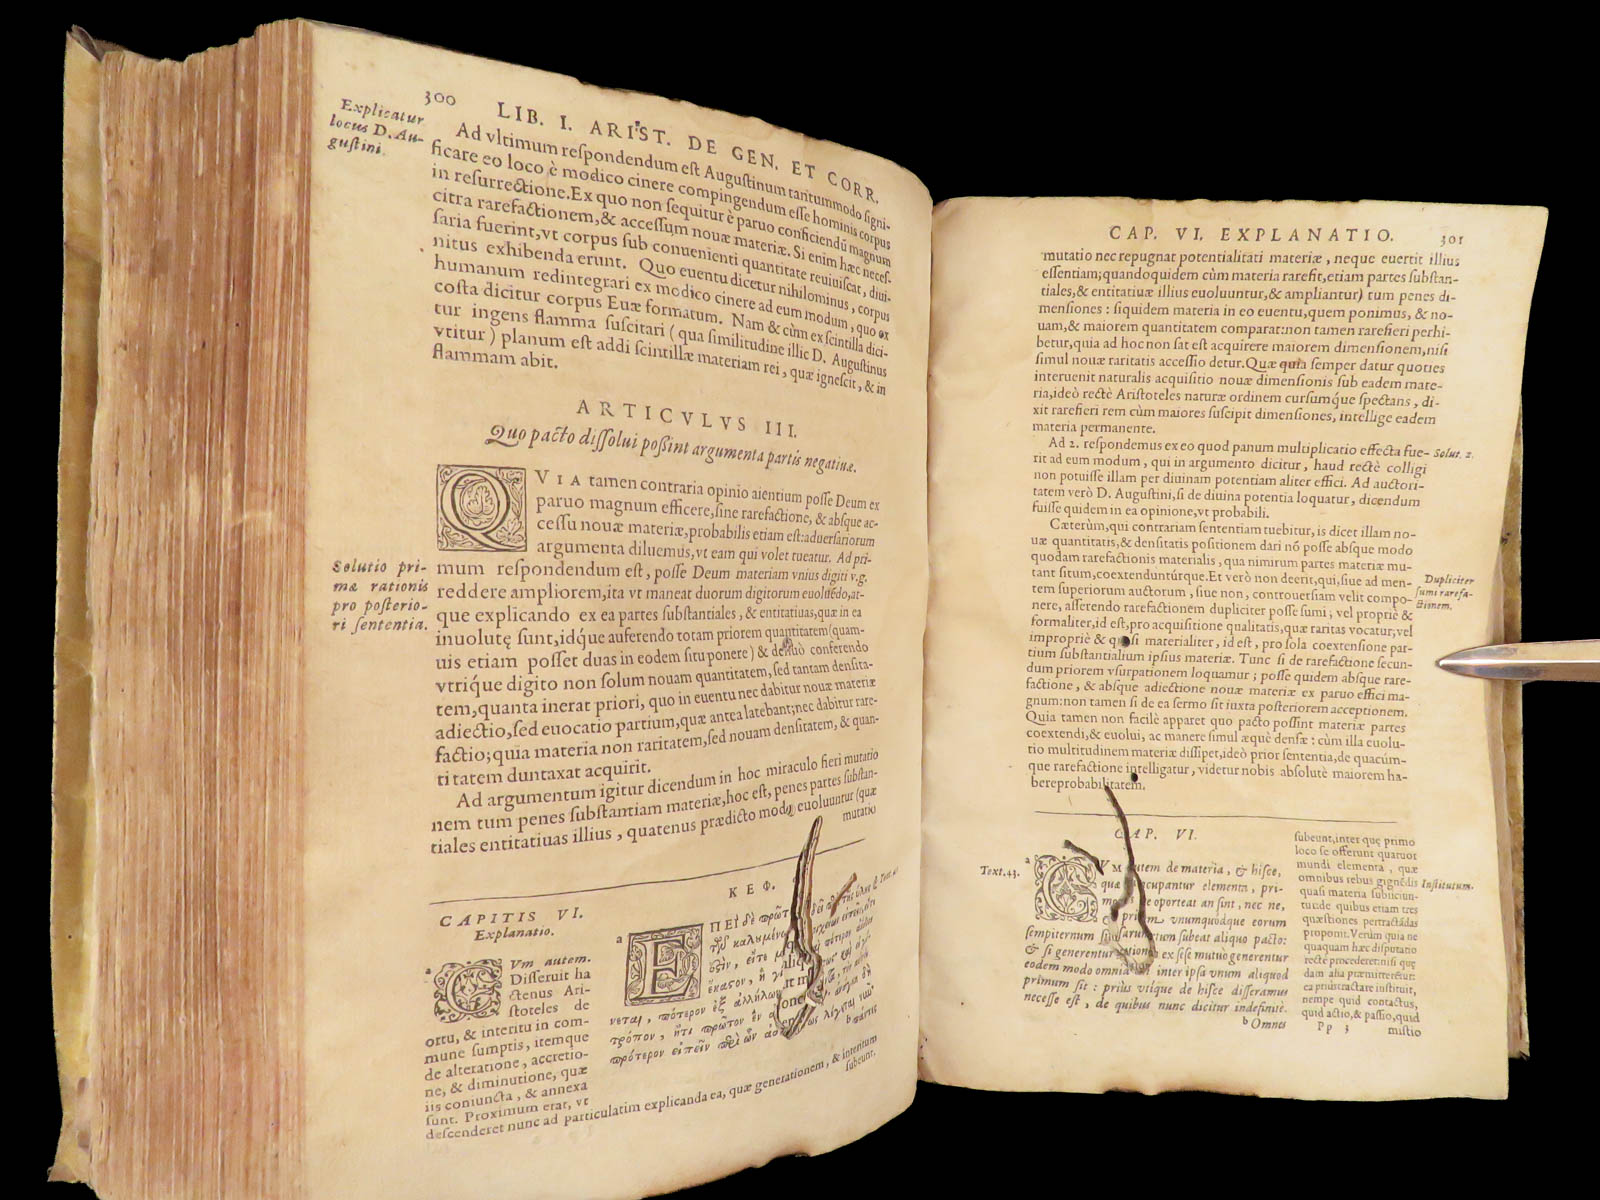 300
LIB. I. ARIST. DE GEN. ET CORR.
Explicatur
locus D. Au-
gustini.
Ad vltimum respondendum est Augustinum tantummodo signi-
ficare eo loco è modico cinere compingendum esse hominis corpus
in resurrectione. Ex quo non sequitur è paruo conficiendũ magnum
citra rarefactionem, & accessum nouæ materiæ. Si enim hæc neces-
saria fuerint, vt corpus sub conuenienti quantitate reuiuiscat, diui-
nitus exhibenda erunt. Quo euentu dicetur nihilominus, corpus
humanum redintegrari ex modico cinere ad eum modum, quo ex
costa dicitur corpus Euæ formatum. Nam & cùm ex scintilla dici-
tur ingens flamma suscitari (qua similitudine illic D. Augustinus
vtitur) planum est addi scintillæ materiam rei, quæ ignescit, & in
flammam abit.
ARTICVLVS III.
Quo pacto dissolui possint argumenta partis negatiuæ.
QVIA tamen contraria opinio aientium posse Deum ex
paruo magnum efficere, sine rarefactione, & absque ac-
cessu nouæ materiæ, probabilis etiam est: aduersariorum
argumenta diluemus, vt eam qui volet tueatur. Ad pri-
Solutio pri-
mæ rationis
pro posterio-
ri sententia.
mum respondendum est, posse Deum materiam vnius digiti v.g.
reddere ampliorem, ita vt maneat duorum digitorum euoluẽdo, at-
que explicando ex ea partes substantiales, & entitatiuas, quæ in ea
inuolutę sunt, idq́ue auferendo totam priorem quantitatem (quam-
uis etiam posset duas in eodem situ ponere) & denuò conferendo
vtriq́ue digito non solum nouam quantitatem, sed tantam densita-
tem, quanta inerat priori, quo in euentu nec dabitur nouæ materiæ
adiectio, sed euocatio partium, quæ antea latebant; nec dabitur rare-
factio; quia materia non raritatem, sed nouam densitatem, & quan-
titatem duntaxat acquirit.
Ad argumentum igitur dicendum in hoc miraculo fieri mutatio
nem tum penes substantiam materiæ, hoc est, penes partes substan-
tiales entitatiuas illius, quatenus prædicto modo euoluuntur (quæ
mutatio
CAPITIS VI.
Explanatio.
a
Vm autem.
Disseruit ha
ctenus Ari-
stoteles de
ortu, & interitu in com-
mune sumptis, itemque
de alteratione, accretio-
ne, & diminutione, quæ
iis coniuncta, & annexa
sunt. Proximum erat, vt
descenderet nunc ad particulatim explicanda ea, quæ generationem, & interitum
subeunt.
ΚΕΦ.
a
ΕΠΕΙ δὲ πρῶτ
τῆς καλουμένω
ὅτιν, εἴτε μὴ
ἕκαστον, ἢ γί
νεται, πότερον ἐξ ἀλλήλων
τρόπον, ἤτι πρῶτον ἓν
πρότερον εἰπεῖν περὶ ὧν
λέγεται
CAP. VI. EXPLANATIO.
301
mutatio nec repugnat potentialitati materiæ, neque euertit illius
essentiam; quandoquidem cùm materia rarefit, etiam partes substan-
tiales, & entitatiuæ illius euoluuntur, & ampliantur) tum penes di-
mensiones: siquidem materia in eo euentu, quem ponimus, & no-
uam, & maiorem quantitatem comparat: non tamen rarefieri perhi-
betur, quia ad hoc non sat est acquirere maiorem dimensionem, nisi
simul nouæ raritatis accessio detur. Quæ quia semper datur quoties
interuenit naturalis acquisitio nouæ dimensionis sub eadem mate-
ria, ideò rectè Aristoteles naturæ ordinem cursumq́ue spectans, di-
xit rarefieri rem cùm maiores suscipit dimensiones, intellige eadem
materia permanente.
Ad 2. respondemus ex eo quod panum multiplicatio effecta fue-
Solut. 2.
rit ad eum modum, qui in argumento dicitur, haud rectè colligi
non potuisse illam per diuinam potentiam aliter effici. Ad auctori-
tatem verò D. Augustini, si de diuina potentia loquatur, dicendum
fuisse quidem in ea opinione, vt probabili.
Cæterùm, qui contrariam sententiam tuebitur, is dicet illam no-
uæ quantitatis, & densitatis positionem dari nõ posse absque modo
quodam rarefactionis materialis, qua nimirum partes materiæ mu-
tant situm, coextenduntúrque. Et verò non deerit, qui, siue ad men-
tem superiorum auctorum, siue non, controuersiam velit compo-
Dupliciter
sumi rarefa-
ctionem.
nere, asserendo rarefactionem dupliciter posse sumi; vel propriè &
formaliter, id est, pro acquisitione qualitatis, quæ raritas vocatur, vel
impropriè & quasi materialiter, id est, pro sola coextensione par-
tium substantialium ipsius materiæ. Tunc si de rarefactione secun-
dum priorem vsurpationem loquamur; posse quidem absque rare-
factione, & absque adiectione nouæ materiæ ex paruo effici ma-
gnum: non tamen si de ea sermo sit iuxta posteriorem acceptionem.
Quia tamen non facilè apparet quo pacto possint materiæ partes
coextendi, & euolui, ac manere simul æquè densæ: cùm illa euolu-
tio multitudinem materiæ dissipet, ideò prior sententia, de quacùm-
que rarefactione intelligatur, videtur nobis absolutè maiorem ha-
bere probabilitatem.
CAP. VI.
Text. 43.
a
CVM autem de materia, & hisce,
quæ nuncupantur elementa, pri-
mo dicere oporteat an sint, nec ne,
& priùm vnumquodque eorum
sempiternum sit, an rursum subeat aliquo pacto:
& si generentur ex sese mutuò generentur
eodem modo omnia inter ipsa vnum aliquod
primum sit: priùs vtique de hisce disseramus
necesse est, de quibus nunc dicitur indefinitè.
b Omnes
subeunt, inter quę primo
loco se offerunt quatuor
mundi elementa, quæ
omnibus rebus gignẽdis
Institutum.
quasi materia subiiciun-
tur: de quibus etiam tres
quæstiones pertractãdas
proponit. Verùm quia ne
quaquam hæc disputatio
rectè procederet: nisi quę
dam alia præmitteretur:
ea priùs tractare instituit,
nempe quid contactus,
quid actio, & passio, quid
Pp 3
mistio